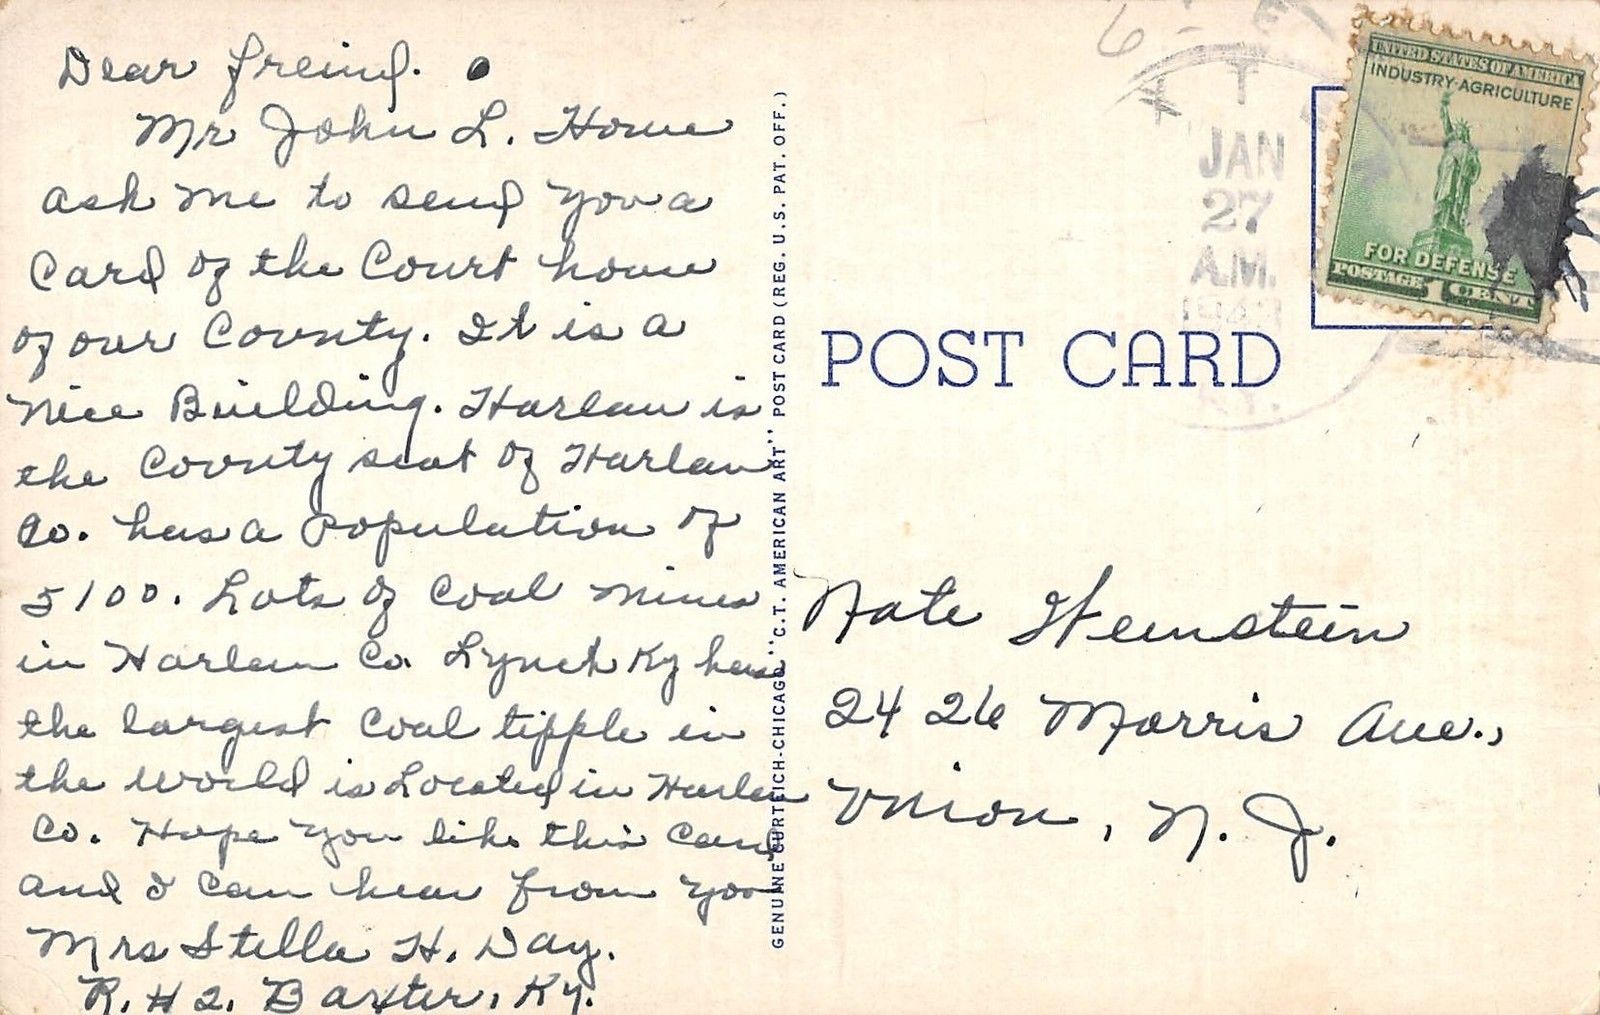 Dear freind.
Mr John L. Howe
ask me to send you a
Card of the Court house
of our County. It is a
Nice Building. Harlan is
the County seat of Harlan
Co. has a Population of
5100. Lots of Coal mines
in Harlan Co. Lynch Ky has
the largest Coal tipple in
the world is Located in Harlan
Co. Hope you like this Card
and I can hear from you
Mrs Stella H. Day.
R. #2. Baxter, Ky.
GENUINE CURTEICH-CHICAGO "C.T. AMERICAN ART" POST CARD (REG. U.S. PAT. OFF.)
JAN
27
A.M.
KY.
UNITED STATES OF AMERICA
INDUSTRY-AGRICULTURE
FOR DEFENSE
POSTAGE 1 CENT
POST CARD
Nate Weinstein
24 26 Morris Ave.,
Union, N. J.